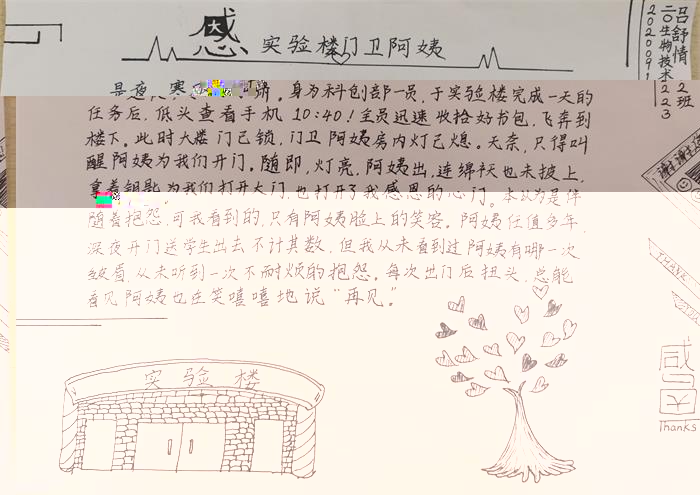 感
大
实验楼门卫阿姨
吕舒情
二〇生物技术2班
是夜,寒
。身为科创部一员,于实验楼完成一天的
任务后,低头查看手机10:40!全员迅速收拾好书包,飞奔到
楼下。此时大楼门已锁,门卫阿姨房内灯已熄。无奈,只得叫
醒阿姨为我们开门。随即,灯亮,阿姨出,连绵袄也未披上,
拿着钥匙为我们打开大门,也打开了我感恩的心门。本以为是伴
随着抱怨,可我看到的,只有阿姨脸上的笑容。阿姨任值多年,
深夜开门送学生出去不计其数,但我从未看到过阿姨有哪一次
皱眉,从未听到一次不耐烦的抱怨。每次出门后扭头,总能
看见阿姨也在笑嘻嘻地说“再见”。
实验楼
谢谢
THANK
Thanks